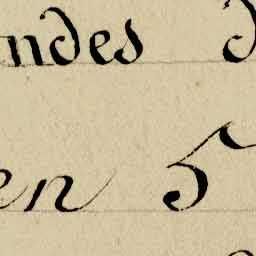 ndes d
en 5